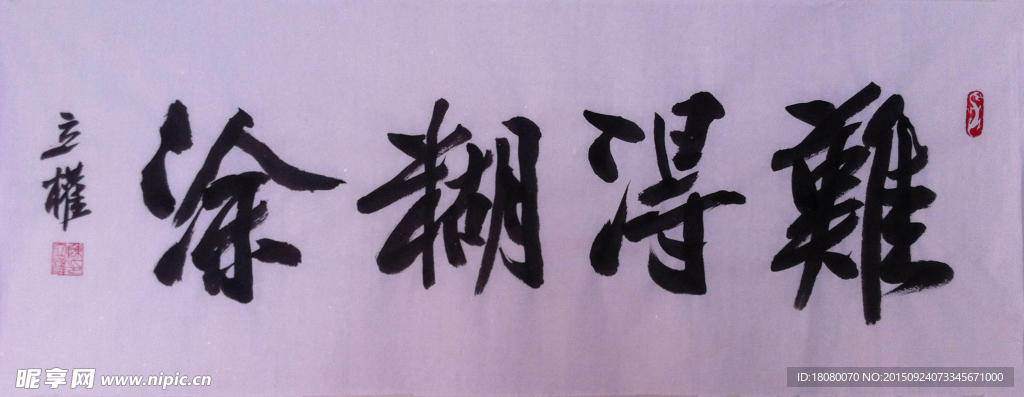 難得糊涂
立權
昵享网 www.nipic.cn
ID:18080070 NO:20150924073345671000